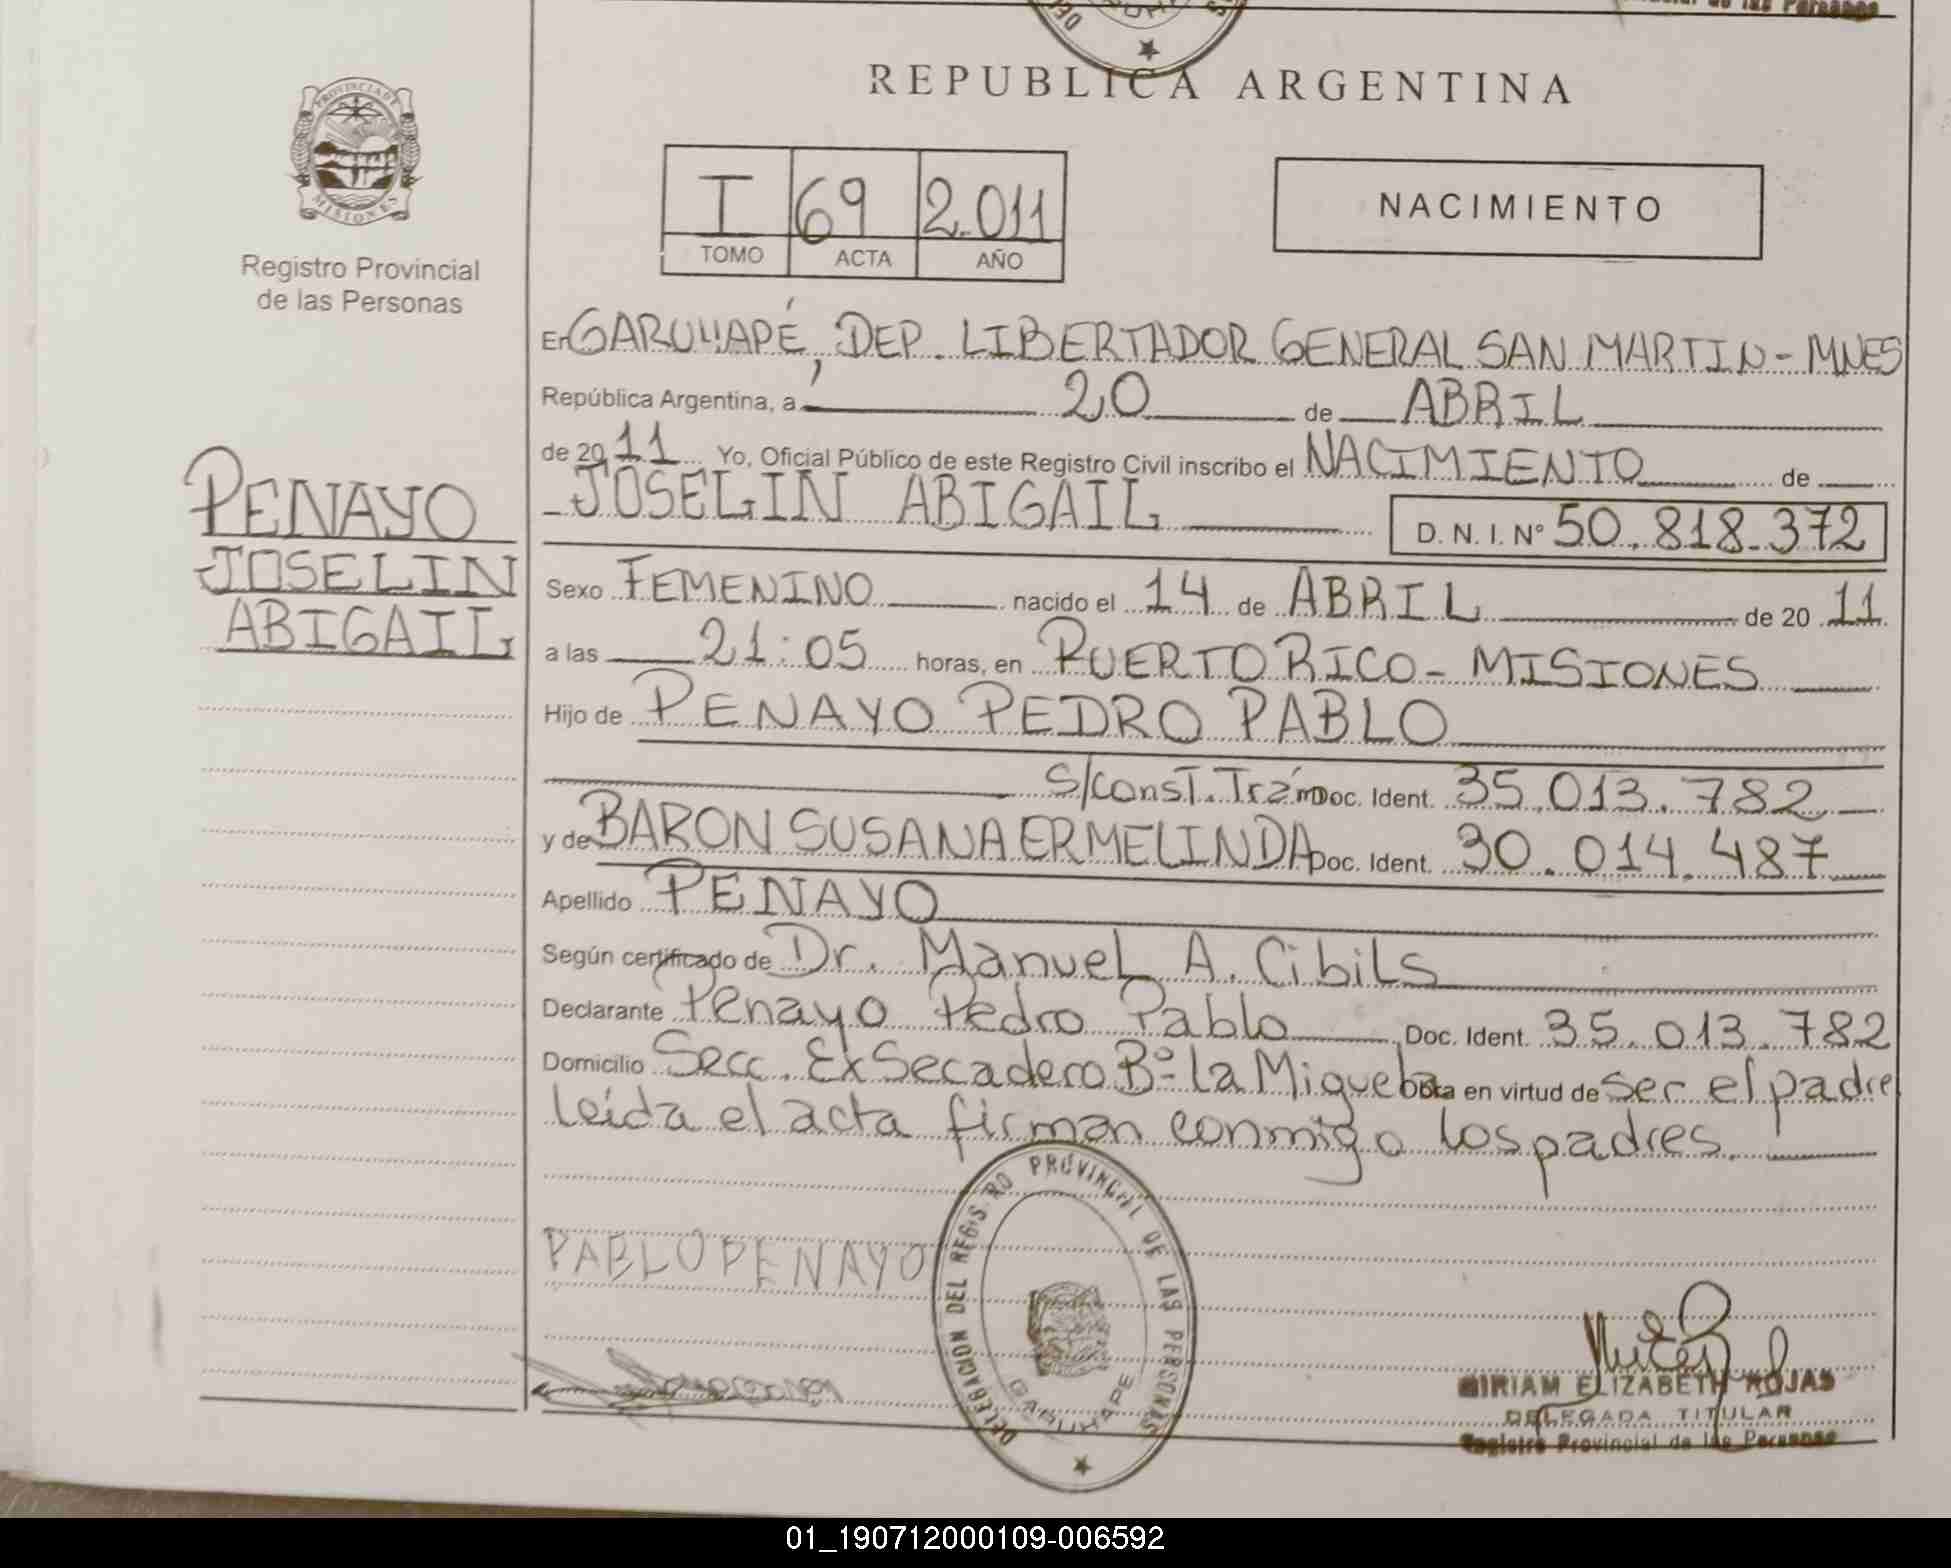 de las Personas
REPUBLICA ARGENTINA
PROVINCIA DE MISIONES
Registro Provincial
de las Personas
I 69 2.011
TOMO ACTA AÑO
NACIMIENTO
PENAYO
JOSELIN
ABIGAIL
En GARUHAPÉ, DEP. LIBERTADOR GENERAL SAN MARTIN - MNES
República Argentina, a 20 de ABRIL
de 2011 Yo, Oficial Público de este Registro Civil inscribo el NACIMIENTO de
JOSELIN ABIGAIL D. N. I. Nº 50.818.372
Sexo FEMENINO nacido el 14 de ABRIL de 20 11
a las 21:05 horas, en PUERTO RICO - MISIONES
Hijo de PENAYO PEDRO PABLO
S/Const. Trám Doc. Ident. 35.013.782
y de BARON SUSANA ERMELINDA Doc. Ident. 30.014.487
Apellido PENAYO
Según certificado de Dr. Manuel A. Cibils
Declarante Penayo Pedro Pablo Doc. Ident. 35.013.782
Domicilio Secc. Ex Secadero Bº la Miguela en virtud de ser el padre
leída el acta firman conmigo los padres.
PABLO PENAYO
DELEGACION DEL REGISTRO PROVINCIAL DE LAS PERSONAS
GARUHAPE
MIRIAM ELIZABETH ROJAS
DELEGADA TITULAR
Registro Provincial de las Personas
01_190712000109-006592